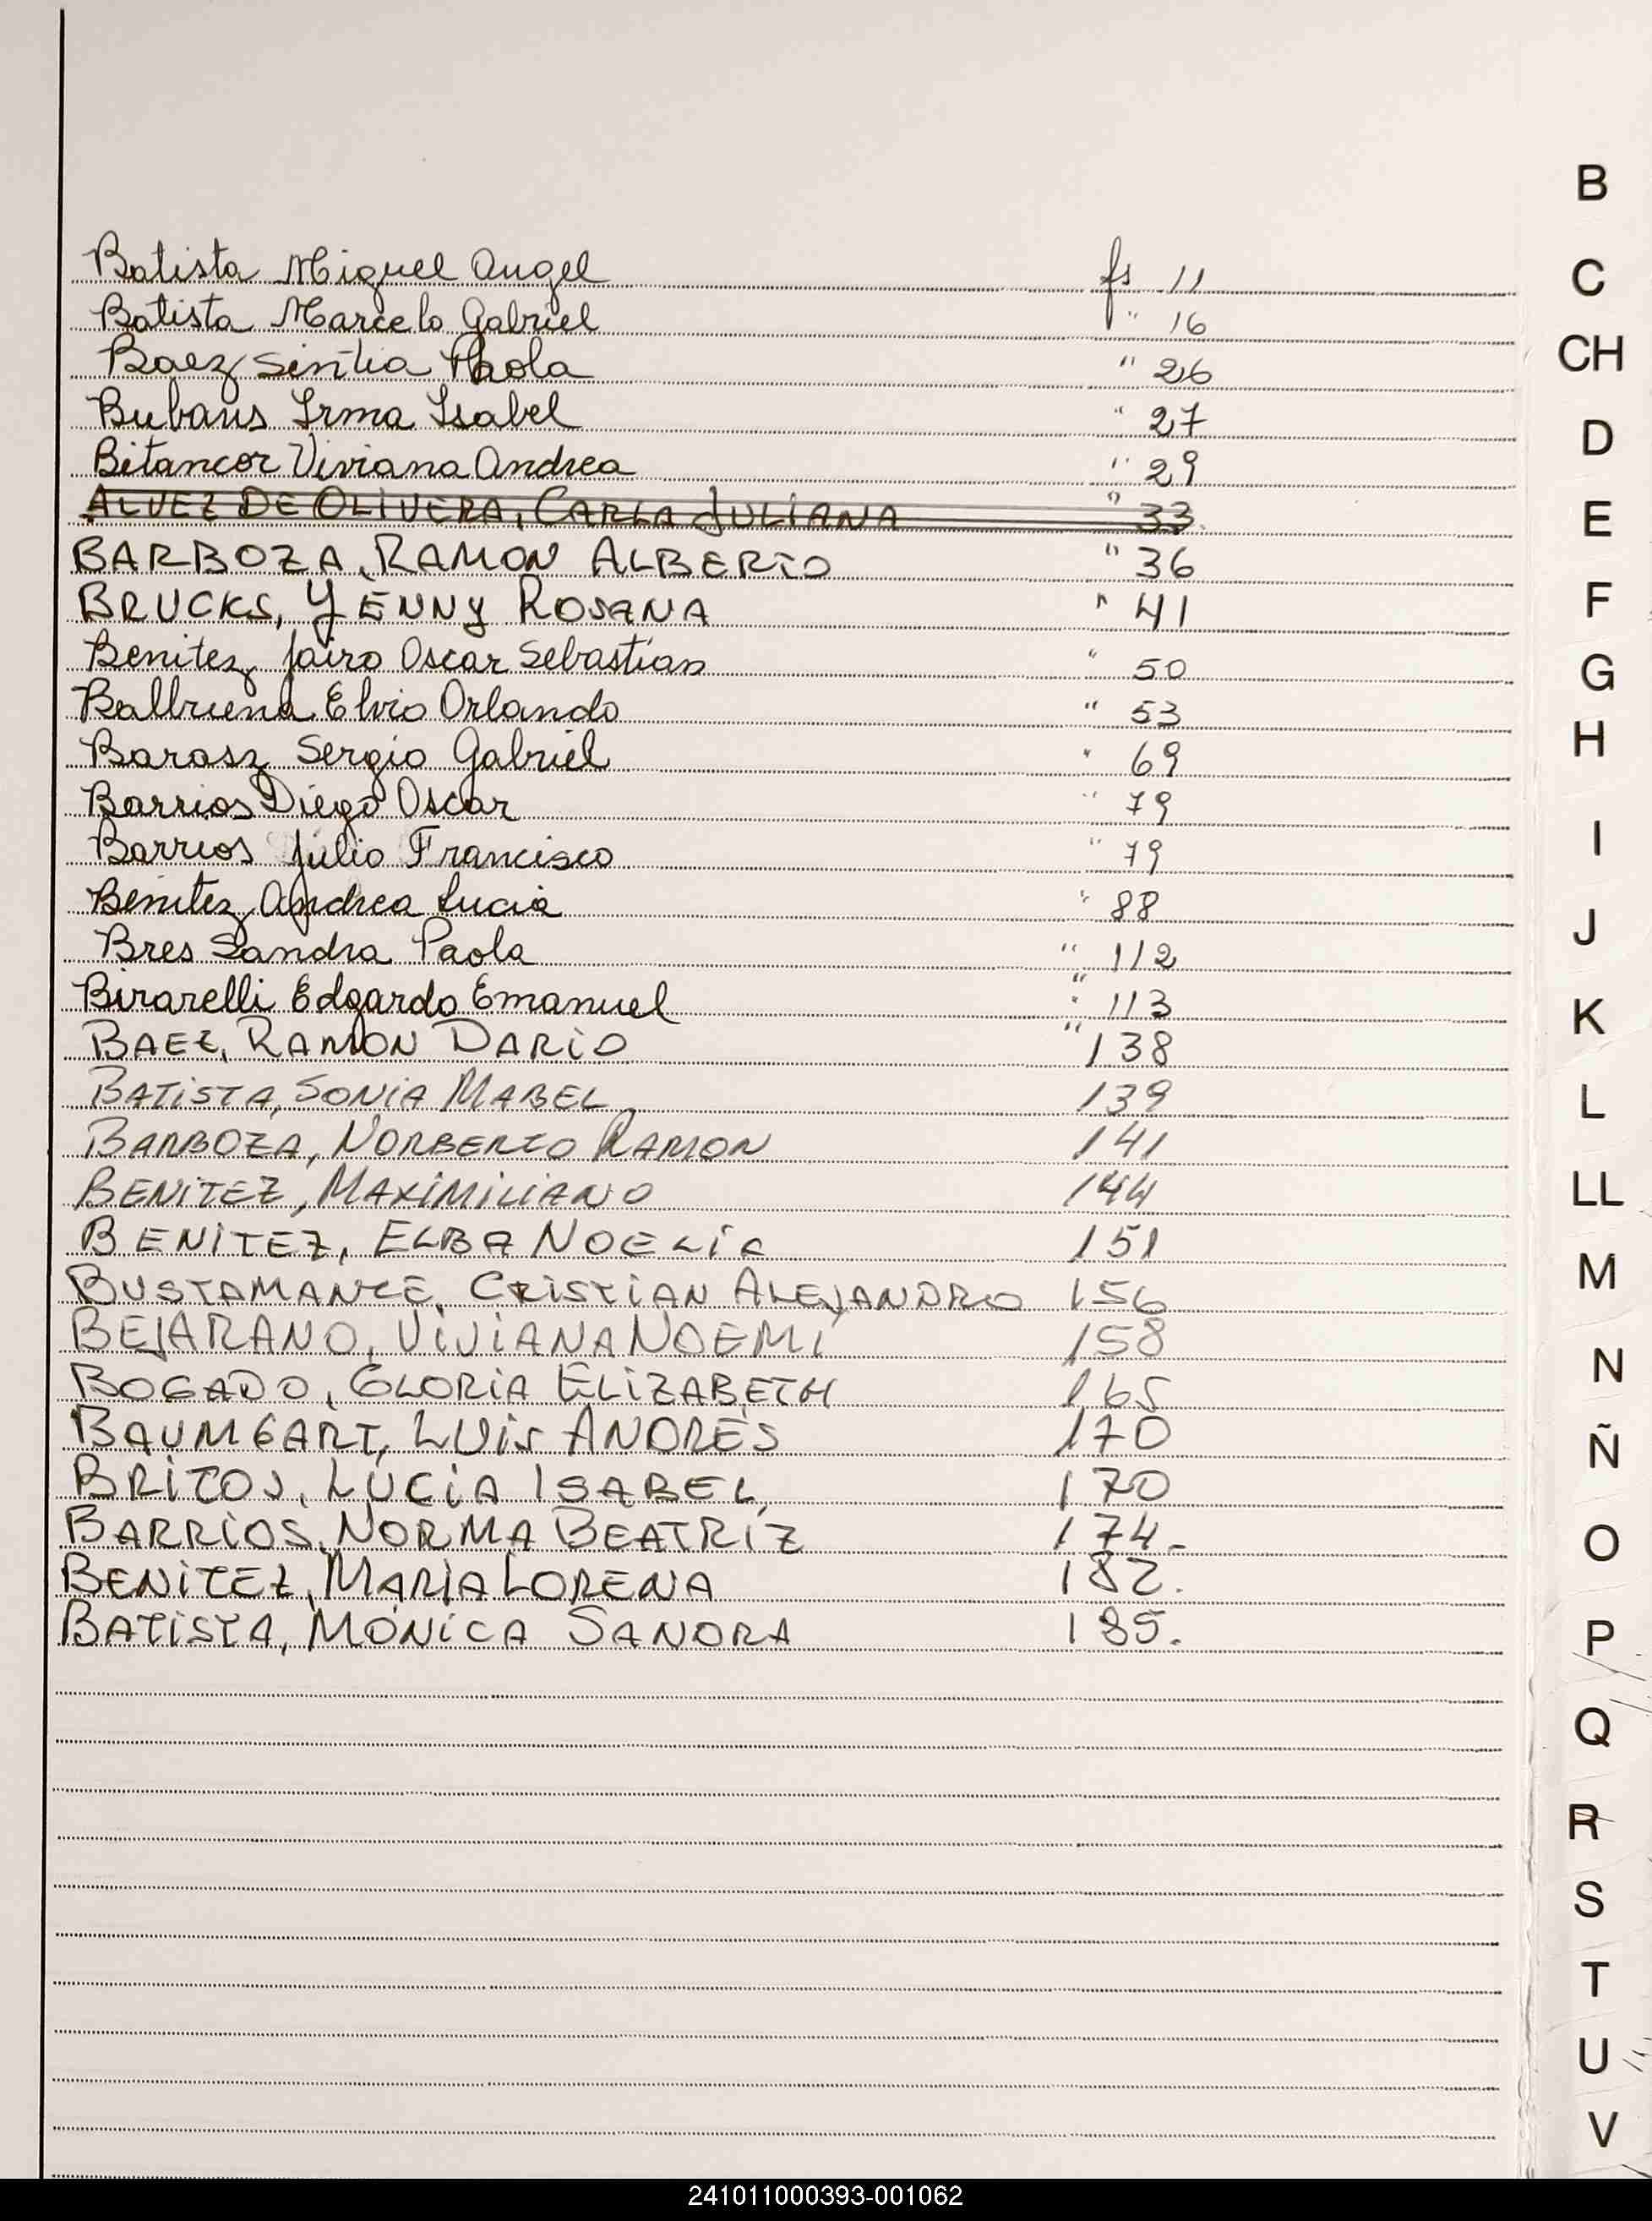 B
Batista Miguel Angel fs 11
C
Batista Marcelo Gabriel " 16
CH
Baez Sintia Paola " 26
Bubans Irma Isabel " 27
D
Bitancor Viviana Andrea " 29
ALVEZ DE OLIVERA, CARLA JULIANA " 33.
E
BARBOZA, RAMON ALBERTO " 36
BRUCKS, YENNY ROSANA " 41
F
Benitez Jairo Oscar Sebastian " 50
G
Balbuena Elvio Orlando " 53
H
Barasz Sergio Gabriel " 69
Barrios Diego Oscar " 79
I
Barrios Julio Francisco " 79
Benitez Andrea Lucia " 88
J
Bres Sandra Paola " 112
Birarelli Edgardo Emanuel " 113
K
BAEZ, RAMON DARIO " 138
BATISTA, SONIA MABEL 139
L
BARBOZA, NORBERTO RAMON 141
BENITEZ, MAXIMILIANO 144
LL
BENITEZ, ELBA NOELIA 151
M
BUSTAMANTE, CRISTIAN ALEJANDRO 156
BEJARANO, VIVIANA NOEMÍ 158
N
BOGADO, GLORIA ELIZABETH 165
BAUMGART, LUIS ANDRÉS 170
Ñ
BRITOS, LUCIA ISABEL 170
BARRIOS, NORMA BEATRÍZ 174.
O
BENITEZ, MARIA LORENA 182.
BATISTA, MÓNICA SANDRA 185.
P
Q
R
S
T
U
V
241011000393-001062